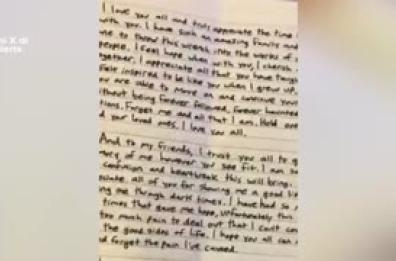 I love you all and truly appreciate the time
with you. I have such an amazing family and
me to throw this wrench into the works of
people. I feel hope when with you, I cherish
together. I appreciate all that you have taught
Felt inspired to be like you when I grew up,
are able to move on and continue your
without being forever followed, forever haunted
Forget me and all that I am. Hold on
your loved ones. I love you all.
And to my friends, I trust you all to
of me however you see fit. I am so
confusion and heartbreak this will bring.
all of you for showing me a good
me through dark times. I have had so
times that gave me hope, unfortunately this
too much pain to deal out that I can't
the good sides of life. I hope you all can
forget the pain I've caused.
X di